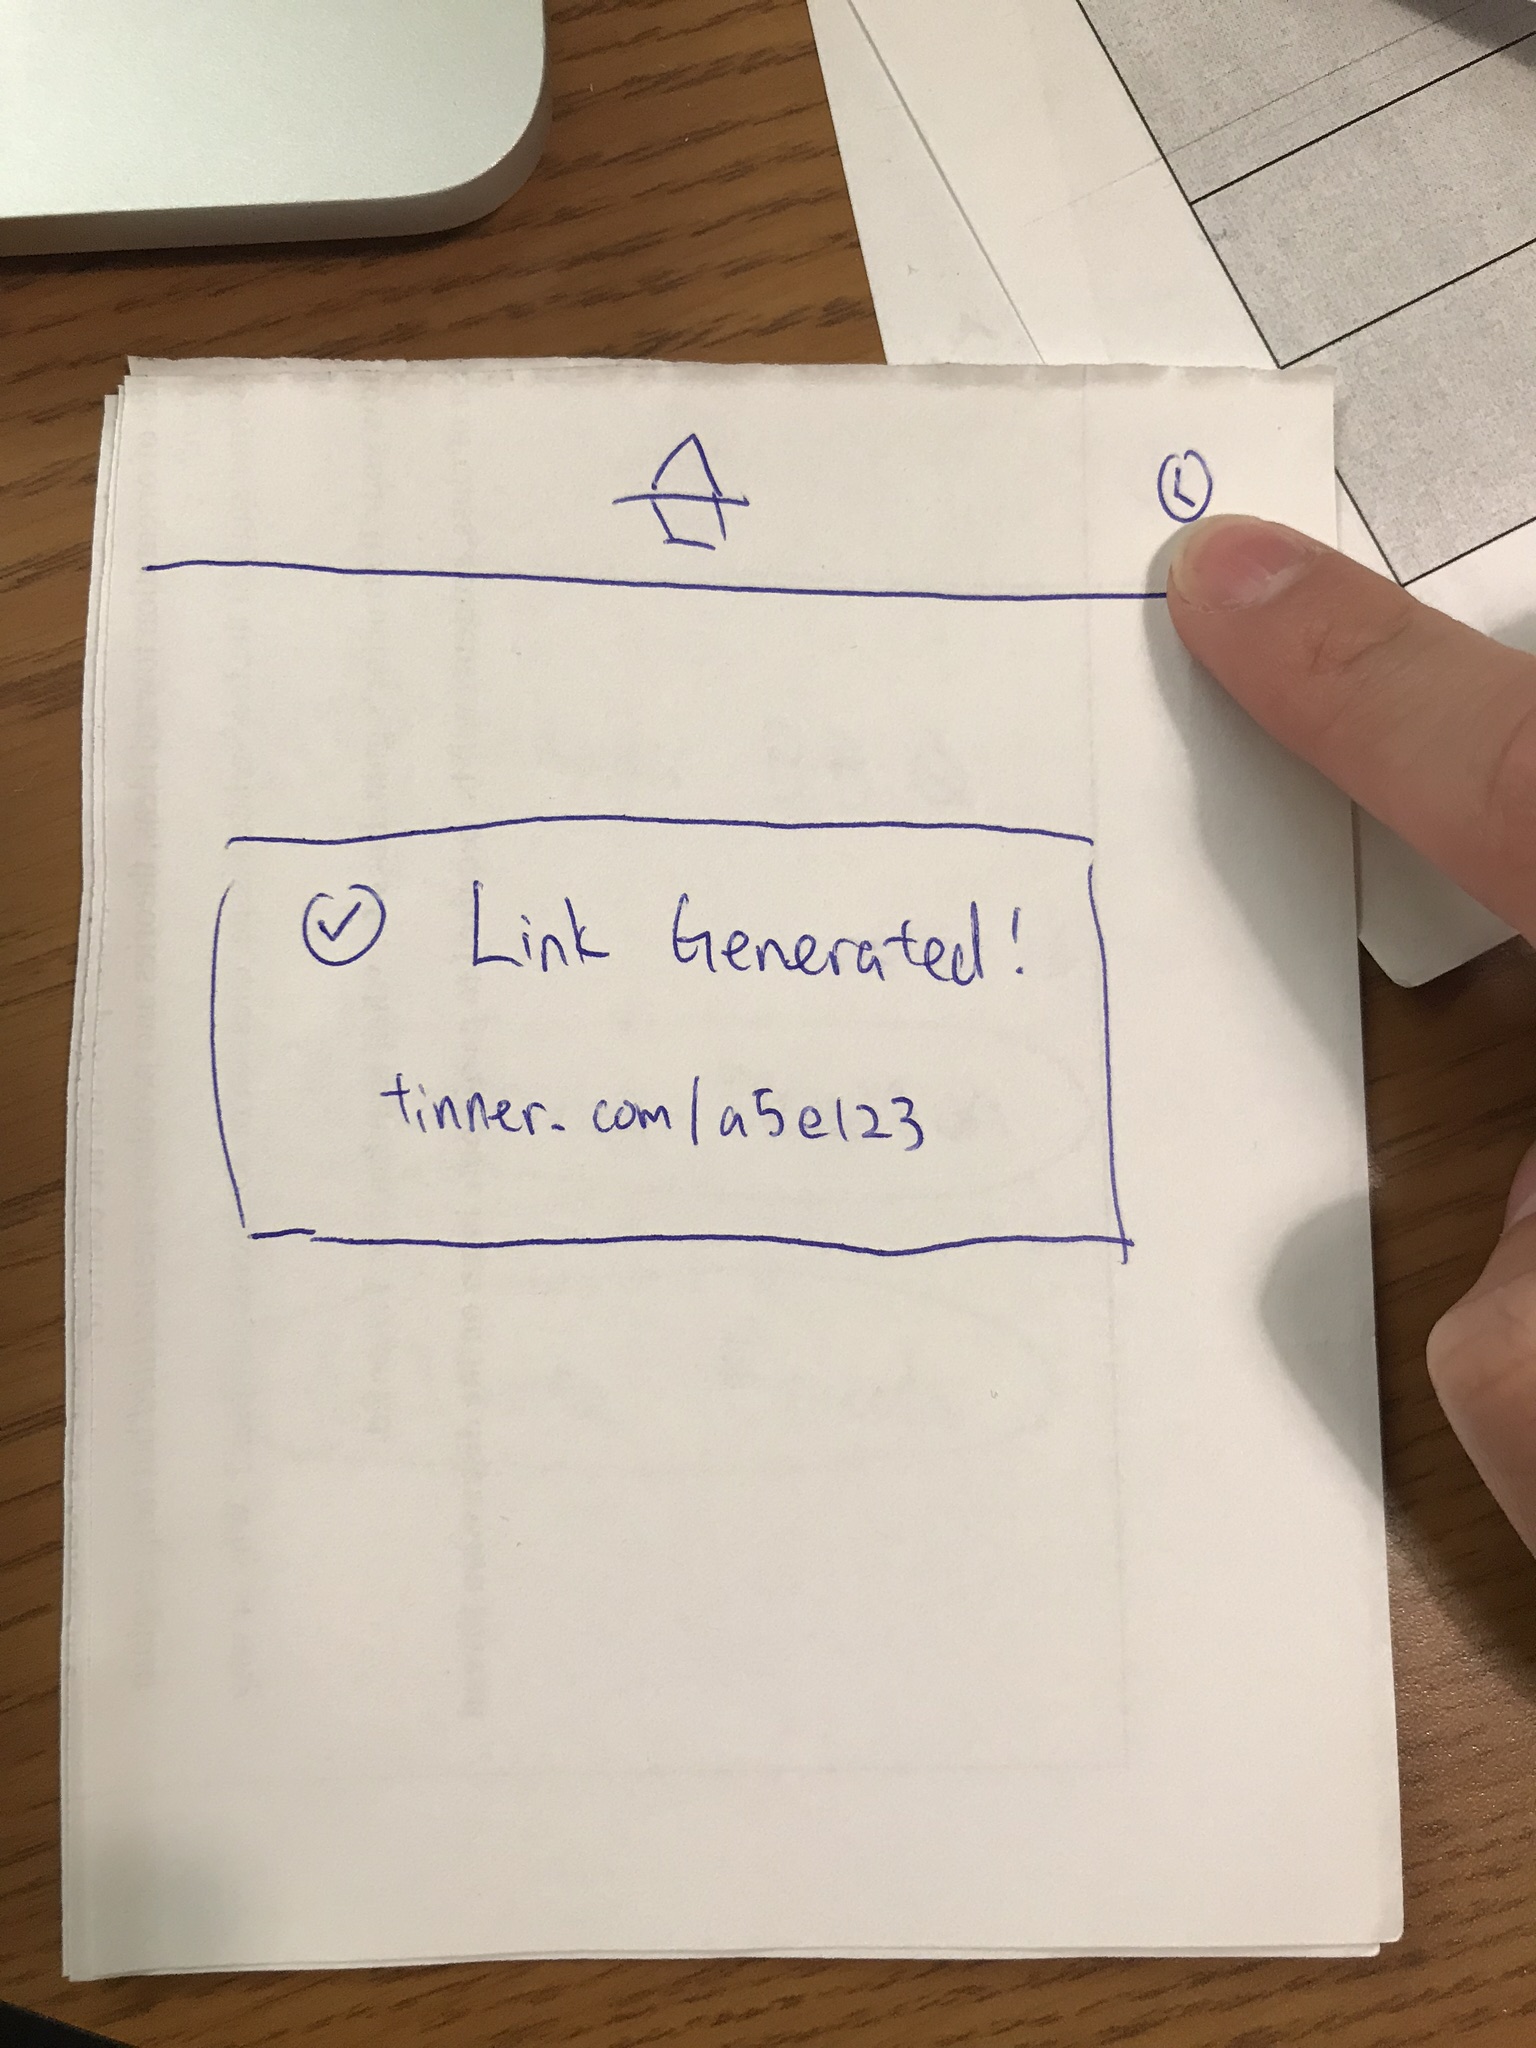 Link Generated!
tinner.com/a5e123